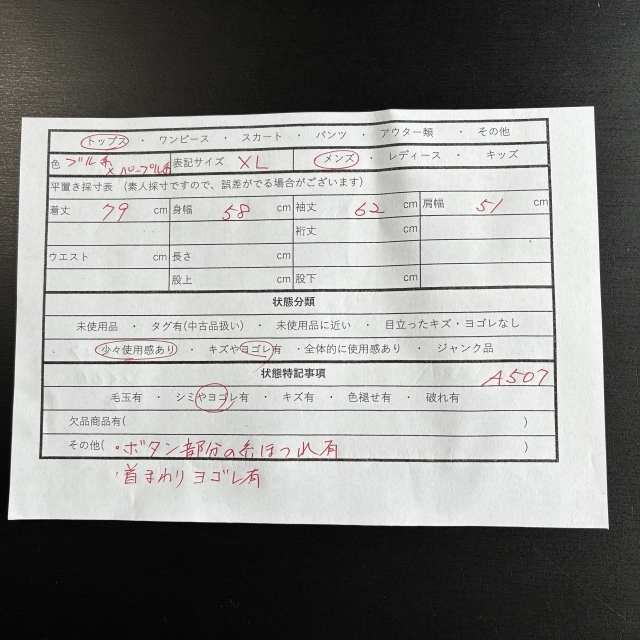 トップス ・ ワンピース ・ スカート ・ パンツ ・ アウター類 ・ その他
色 ブルー系×パープル系 表記サイズ XL メンズ ・ レディース ・ キッズ
平置き採寸表 (素人採寸ですので、誤差がでる場合がございます)
着丈 79 cm 身幅 58 cm 袖丈 62 cm 肩幅 51 cm
裄丈 cm
ウエスト cm 長さ cm
股上 cm 股下 cm
状態分類
未使用品 ・ タグ有(中古品扱い) ・ 未使用品に近い ・ 目立ったキズ・ヨゴレなし
少々使用感あり ・ キズやヨゴレ有 ・全体的に使用感あり ・ ジャンク品
状態特記事項 A507
毛玉有 ・ シミやヨゴレ有 ・ キズ有 ・ 色褪せ有 ・ 破れ有
欠品商品有( )
その他( ・ボタン部分の糸ほつれ有 )
・首まわりヨゴレ有